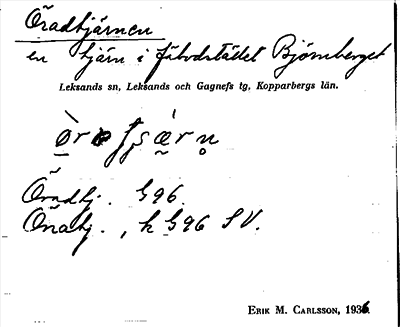 Öradtjärnen
en tjärn i fäbodstället Björnberget
Leksands sn, Leksands och Gagnefs tg, Kopparbergs län.
Öradtj. G96
h G96 SV.
ERIK M. CARLSSON, 1936.